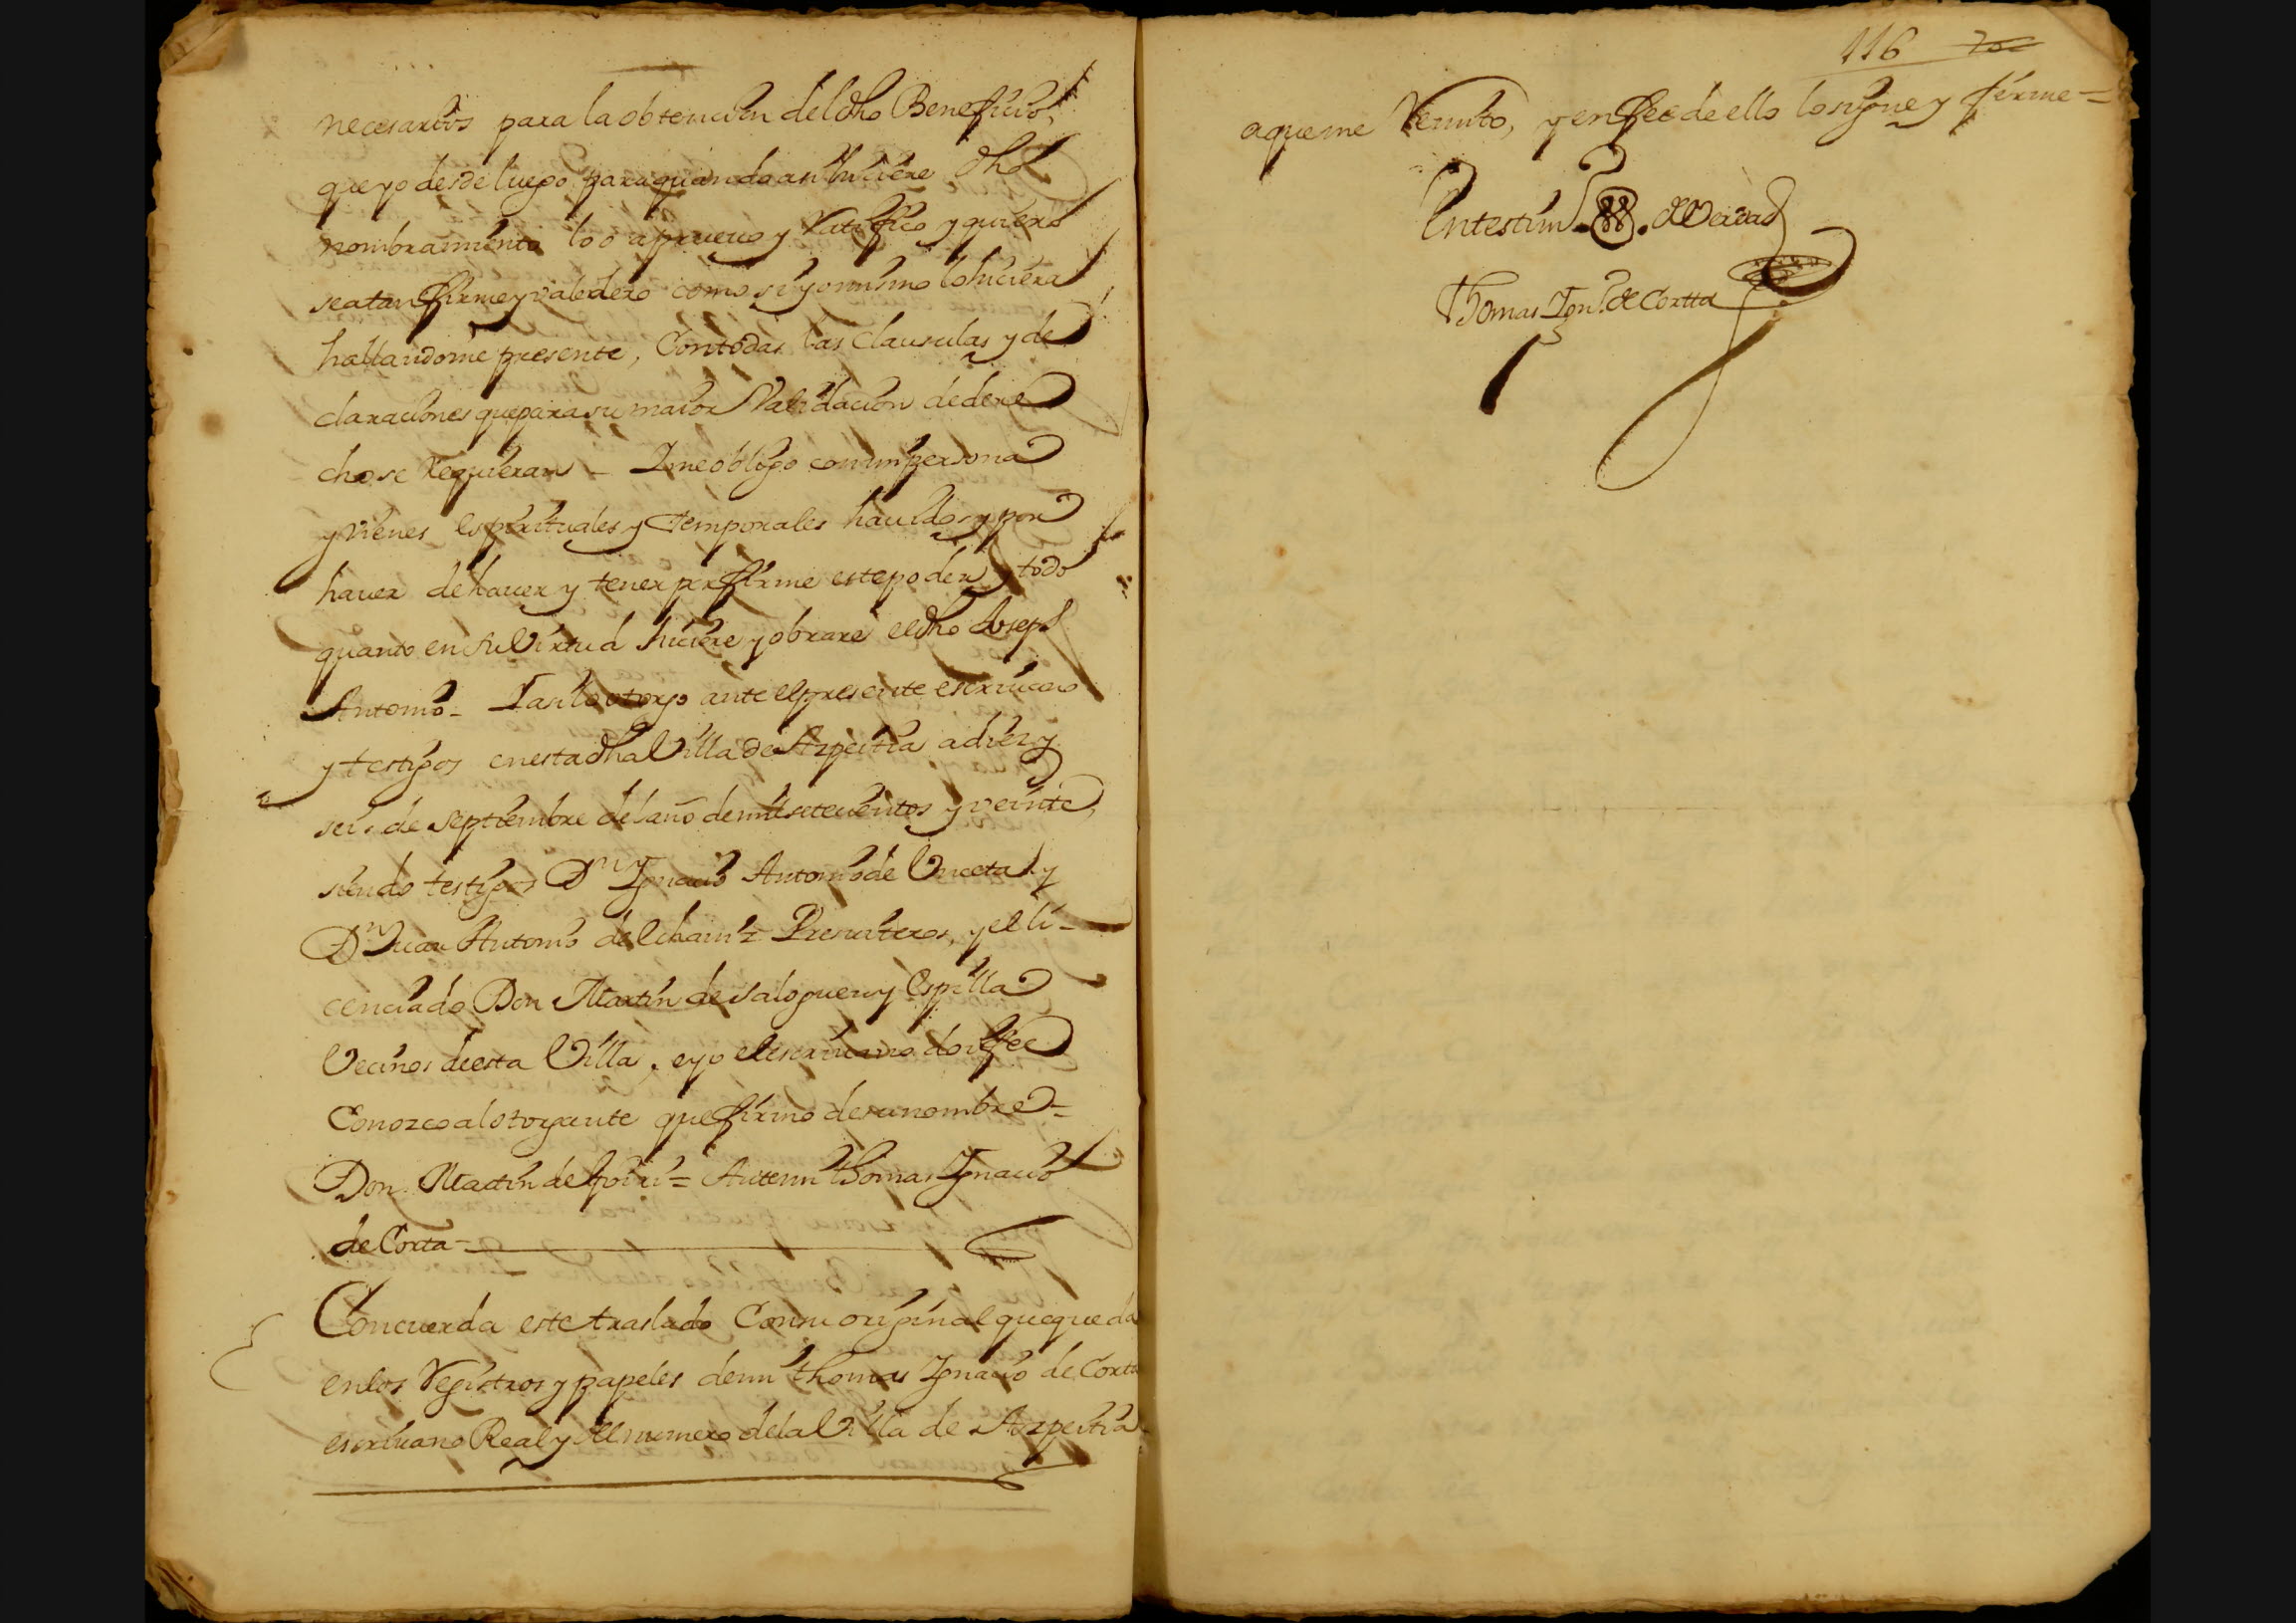 necesarios para la obtencion del dho Beneficio,
que yo desde luego para quando asi hiciere dho
nombramiento lo o aprueuo y Ratifico y quiero
sea tan firme y valedero como si yo mismo lo hiciera
hallandome presente, Con todas las Clausulas y de
claraciones que para su maior Validacion de dere
cho se Requieran - I me obligo con mi persona
y vienes espirituales y temporales hauidos y por
hauer de hauer y tener por firme este poder y todo
quanto en su Virtud hiciere y obrare el dho Joseph
Antonio - I asi lo otorgo ante el presente escriuano
y testigos en esta dha Villa de Azpeitia a diez y
seis de septiembre del año de mil setecientos y veinte,
siendo testigos Dn Ignacio Antonio de Unceta y
Dn Juan Antonio de Echaniz Presuiteros, y el li-
cenciado Don Martin de Saloguen y Espilla
Vecinos de esta Villa, e yo el escriuano doi fee
Conozco al otorgante que firmo de su nombre =
Don Martin de = Ante mi Thomas Ignacio
de Corta =
Concuerda este traslado Con su original que queda
en los Registros y papeles de mi Thomas Ignacio de Corta
escriuano Real y del numero de la Villa de Azpeitia
116
a que me Remito, y en fee de ello lo signe y firme =
En testim.o de Verdad
Thomas Ign.o de Cortta